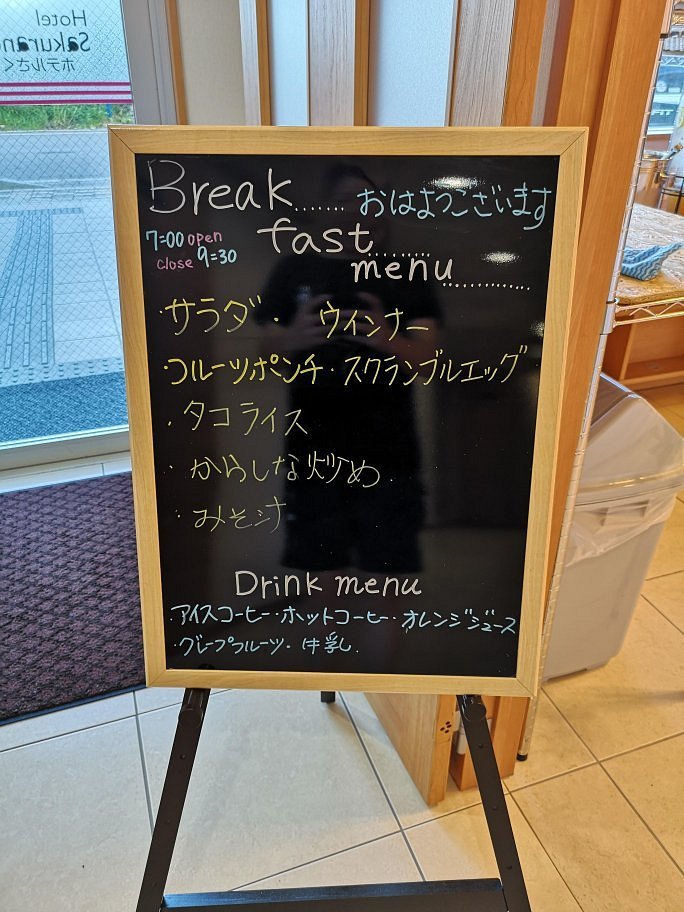 Hotel
Sakuran
ホテルさく
Break...... おはようございます
7:00 open
fast........
close 9:30
menu............
・サラダ・ ウインナー
・フルーツポンチ・スクランブルエッグ
・タコライス
・からしな炒め
・みそ汁
Drink menu
・アイスコーヒー・ホットコーヒー・オレンジジュース
・グレープフルーツ・牛乳